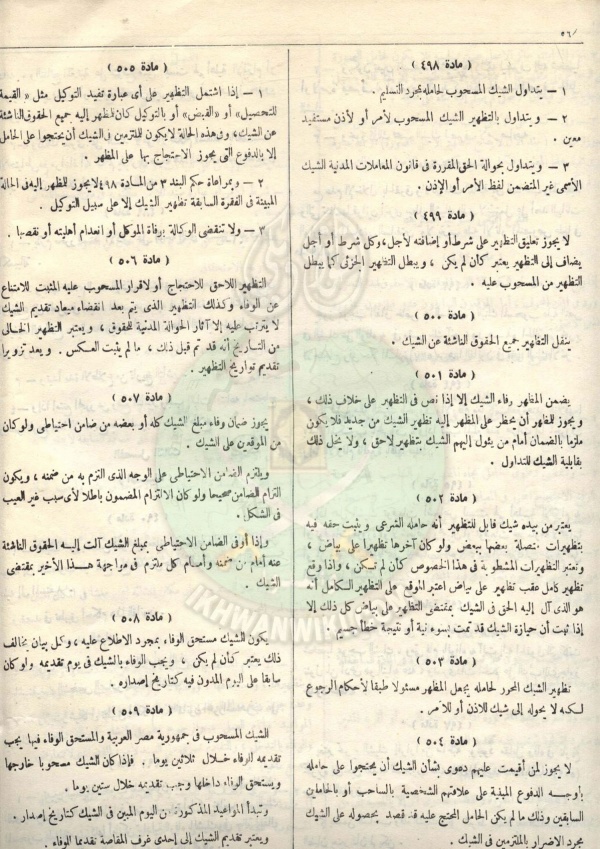 ٥٦/
( مادة ٤٩٨ )
١ – يتداول الشيك المسحوب لحامله بمجرد التسليم .
٢ – ويتداول بالتظهير الشيك المسحوب لأمر أو لأذن مستفيد
معين .
٣ – ويتداول بحوالة الحق المقررة فى قانون المعاملات المدنية الشيك
الأسمى غير المتضمن لفظ الأمر أو الإذن .
( مادة ٤٩٩ )
لا يجوز تعليق التظهير على شرط أو إضافته لأجل ، وكل شرط أو أجل
يضاف إلى التظهير يعتبر كأن لم يكن ، ويبطل التظهير الجزئى كما يبطل
التظهير من المسحوب عليه .
( مادة ٥٠٠ )
ينقل التظهير جميع الحقوق الناشئة عن الشيك .
( مادة ٥٠١ )
يضمن المظهر وفاء الشيك إلا إذا نص فى التظهير على خلاف ذلك ،
ويجوز للمظهر أن يحظر على المظهر إليه تظهير الشيك من جديد فلا يكون
ملزما بالضمان أمام من يئول إليهم الشيك بتظهير لاحق ، ولا يخل ذلك
بقابلية الشيك للتداول .
( مادة ٥٠٢ )
يعتبر من بيده شيك قابل للتظهير أنه حامله الشرعى ويثبت حقه فيه
بتظهيرات متصلة بعضها ببعض ولو كان آخرها تظهيرا على بياض ،
وتعتبر التظهيرات المشطوبة فى هذا الخصوص كأن لم تكن ، وإذا وقع
تظهير كامل عقب تظهير على بياض اعتبر الموقع على التظهير الكامل أنه
هو الذى آل إليه الحق فى الشيك بمقتضى التظهير على بياض كل ذلك إلا
إذا ثبت أن حيازة الشيك قد تمت بسوء نية أو نتيجة خطأ جسيم .
( مادة ٥٠٣ )
تظهير الشيك المحرر لحامله يجعل المظهر مسئولا طبقا لأحكام الرجوع
لكنه لا يحوله إلى شيك للاذن أو للأمر .
( مادة ٥٠٤ )
لا يجوز لمن أقيمت عليهم دعوى بشأن الشيك أن يحتجوا على حامله
بأوجه الدفوع المبنية على علاقتهم الشخصية بالساحب أو بالحاملين
السابقين وذلك ما لم يكن الحامل المحتج عليه قد قصد بحصوله على الشيك
مجرد الاضرار بالملتزمين فى الشيك .
( مادة ٥٠٥ )
١ – إذا اشتمل التظهير على أى عبارة تفيد التوكيل مثل « القيمة
للتحصيل » أو « القبض » أو بالتوكيل كان للمظهر إليه جميع الحقوق الناشئة
عن الشيك ، وفى هذه الحالة لا يكون للملتزمين فى الشيك أن يحتجوا على الحامل
إلا بالدفوع التى يجوز الاحتجاج بها على المظهر .
٢ – وبمراعاة حكم البند ٣ من المادة ٤٩٨ لا يجوز للمظهر إليه فى الحالة
المبينة فى الفقرة السابقة تظهير الشيك إلا على سبيل التوكيل .
٣ – ولا تنقضى الوكالة بوفاة الموكل أو انعدام أهليته أو نقصها .
( مادة ٥٠٦ )
التظهير اللاحق للاحتجاج أو لاقرار المسحوب عليه المثبت للامتناع
عن الوفاء وكذلك التظهير الذى يتم بعد انقضاء ميعاد تقديم الشيك
لا يترتب عليه إلا آثار الحوالة المدنية للحقوق ، ويعتبر التظهير الخالى
من التاريخ أنه قد تم قبل ذلك ، ما لم يثبت العكس . ويعد تزويرا
تقديم تواريخ التظهير .
( مادة ٥٠٧ )
يجوز ضمان وفاء مبلغ الشيك كله أو بعضه من ضامن احتياطى ولو كان
من الموقعين على الشيك .
ويلتزم الضامن الاحتياطى على الوجه الذى التزم به من ضمنه ، ويكون
التزام الضامن صحيحا ولو كان الالتزام المضمون باطلا لأى سبب غير العيب
فى الشكل .
وإذا أوفى الضامن الاحتياطى بمبلغ الشيك آلت إليه الحقوق الناشئة
عنه أمام من ضمنه وأمام كل ملتزم فى مواجهة هذا الأخير بمقتضى
الشيك .
( مادة ٥٠٨ )
يكون الشيك مستحق الوفاء بمجرد الاطلاع عليه ، وكل بيان يخالف
ذلك يعتبر كأن لم يكن ، ويجب الوفاء بالشيك فى يوم تقديمه ولو كان
سابقا على اليوم المدون فيه كتاريخ إصداره .
( مادة ٥٠٩ )
الشيك المسحوب فى جمهورية مصر العربية والمستحق الوفاء فيها يجب
تقديمه الوفاء خلال ثلاثين يوما . فإذا كان الشيك مسحوبا خارجها
ويستحق الوفاء داخلها وجب تقديمه خلال ستين يوما .
وتبدأ المواعيد المذكورة من اليوم المبين فى الشيك كتاريخ إصدار .
ويعتبر تقديم الشيك إلى إحدى غرف المقاصة تقديما للوفاء .
IKHWANWIKI